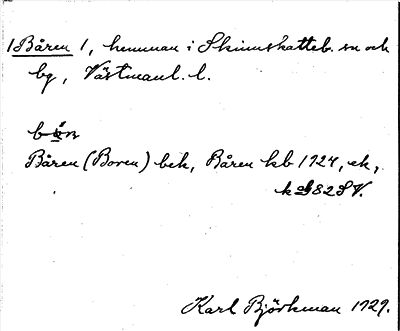 1 Båren 1, hemman i Skinnskatteb. sn och
bg, Västmanl. l.
bår
Båren (Boren) bek, Båren kb 1924, ek,
k 82 SV.
Karl Björkman 1929.